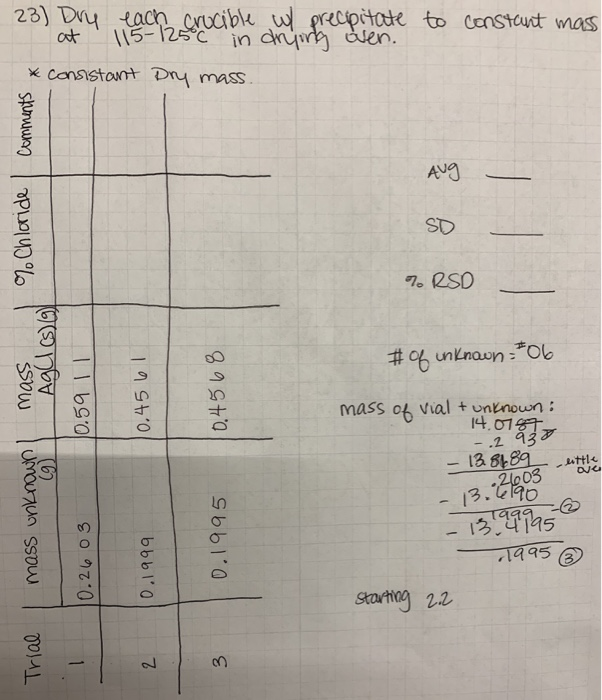 23) Dry each crucible w/ precipitate to constant mass
at 115-125°C in drying oven.
* consistant Dry mass.
Trial | mass unknown (g) | mass AgCl(s)(g) | % Chloride | Comments
1 | 0.2603 | 0.5911
2 | 0.1999 | 0.4561
3 | 0.1995 | 0.4568
Avg ___
SD ___
% RSD ___
# of unknown = #06
mass of vial + unknown:
14.0787
- 13.8189
.2603
- 13.6190
.1999 - ②
- 13.4195
.1995 ③
starting 2.2